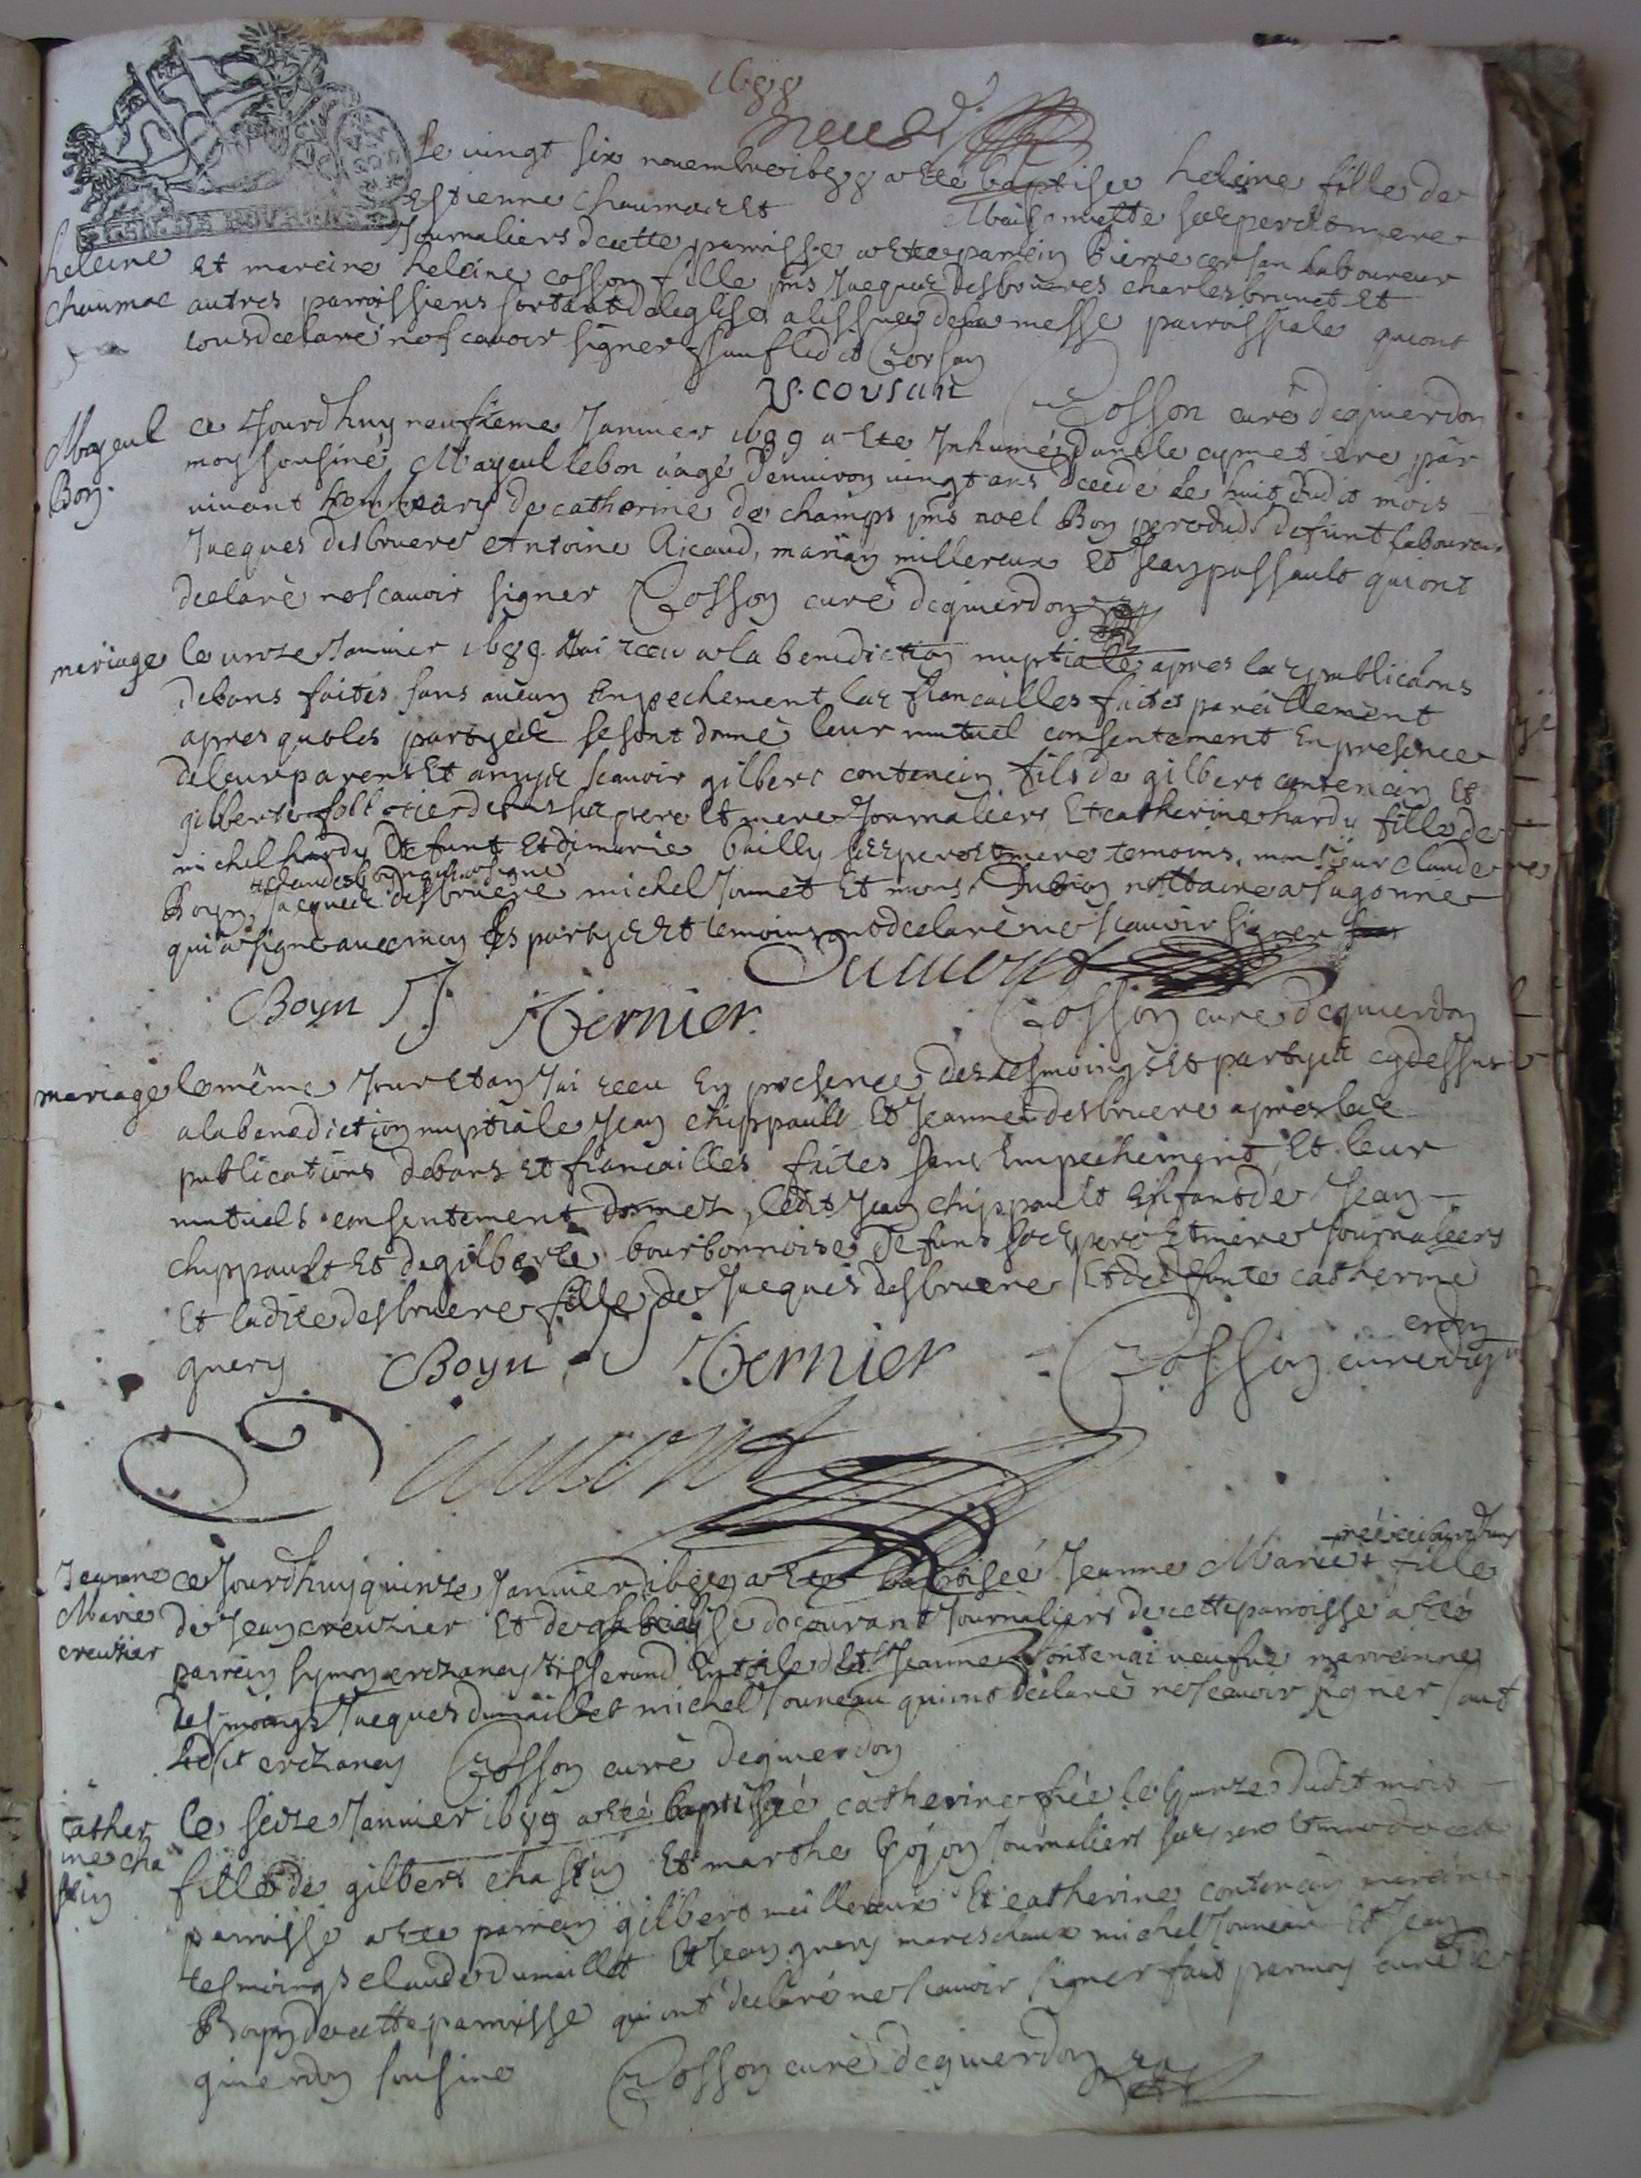 1688
neuf
Le vingt six novembre 1688 a ete baptisee heleine fille de
Estienne chaumat Et ses pere et mere
Journaliers de cette paroisse a ete parein Pierre corsan laboureur
heleine
Et mareine heleine cosson fille pns Jacques desbrueres charles brunet Et
chaumat
autres paroissiens sortant de leglise a lissue de la messe parroissiale qui ont
tous declaré ne scavoir signer sauf led it Corsan
P. corsan
Cosson curé de givierdon
Mayeul
Bon
ce Jourdhuy neufieme Janvier 1689 a ete Inhumé dans le cymetiere par
moy sousiné Mayeul lebon aagé d'environ vingt ans decedé le huit dudit mois
vivant mary de catherine de champs pns noel Bon pere dud. defunt laboureur
Jacques desbruere Antoine Ricaud, marian millereux Et Jean passault qui ont
declaré ne scavoir signer Cosson curé de givierdon
meriage
le unze Janvier 1689 Jai receu a la benediction nuptiale apres les publicaons
de bans faites sans aucun Enpechement les fiancailles faites pareillement
apres quoles partyes se sont donné leur mutuel consentement En presence
de leur parens Et amys scavoir gilbert contencin fils de gilbert contencin Et
gilberte defuns ses pere Et mere Journaliers Et catherine hardy fille de
michel hardy defunt Et de marie bailly ses pere et mere temoins, monsieur claude
Boyn, Jacques desbruere michel Jounet Et mons. nottaire a sagonne
qui a signé avec moy Les partyes Et temoins ont declaré ne scavoir signer
Boyn Ternier
Cosson curé de givierdon
mariage
le même Jour Et an Jai receu En presence des tesmoings Et partyes cy dessus
a la benediction nuptiale Jean chippault Et Jeanne desbruere apres les
publications de bans Et fiancailles faites sans Empechement Et leur
mutuels consentement donnez, ledit Jean chippault Enfant de Jean
chippault Et de gilberte bourbonnoise defuns ses pere Et mere Journaliers
Et ladite desbruere fille de Jacques desbruere Et de defunte catherine
guery Boyn Ternier Cosson curé de givi
erdon
Jeanne
Marie
creuzier
ce Jourdhuy quinze Janvier 1689 a ete baptisée Jeanne Marie fille
de Jean creuzier Et de decourant Journaliers de cette parroisse a eté
parrein symon erezancy tisserand En toile Et Jeanne marreinne
Tesmoings Jacques dumaillet michel Jouneau qui ont declaré ne scavoir signer sauf
Ledit erezancy Cosson curé de givierdon
cather
ine cha
stin
le seize Janvier 1689 a eté baptisée catherine née le quinze dudit mois
fille de gilbert chastin Et marthe Gojon Journaliers ses pere Et mere de cette
parroisse a ete parrein gilbert meillereux Et catherine contencin mareine
tesmoings claude dumaillet Et Jean guery mareschaux michel Jouneau Et Jean
Boyn de cette parroisse qui ont declaré ne scavoir signer fait par moy curé de
givierdon sousiné Cosson curé de givierdon